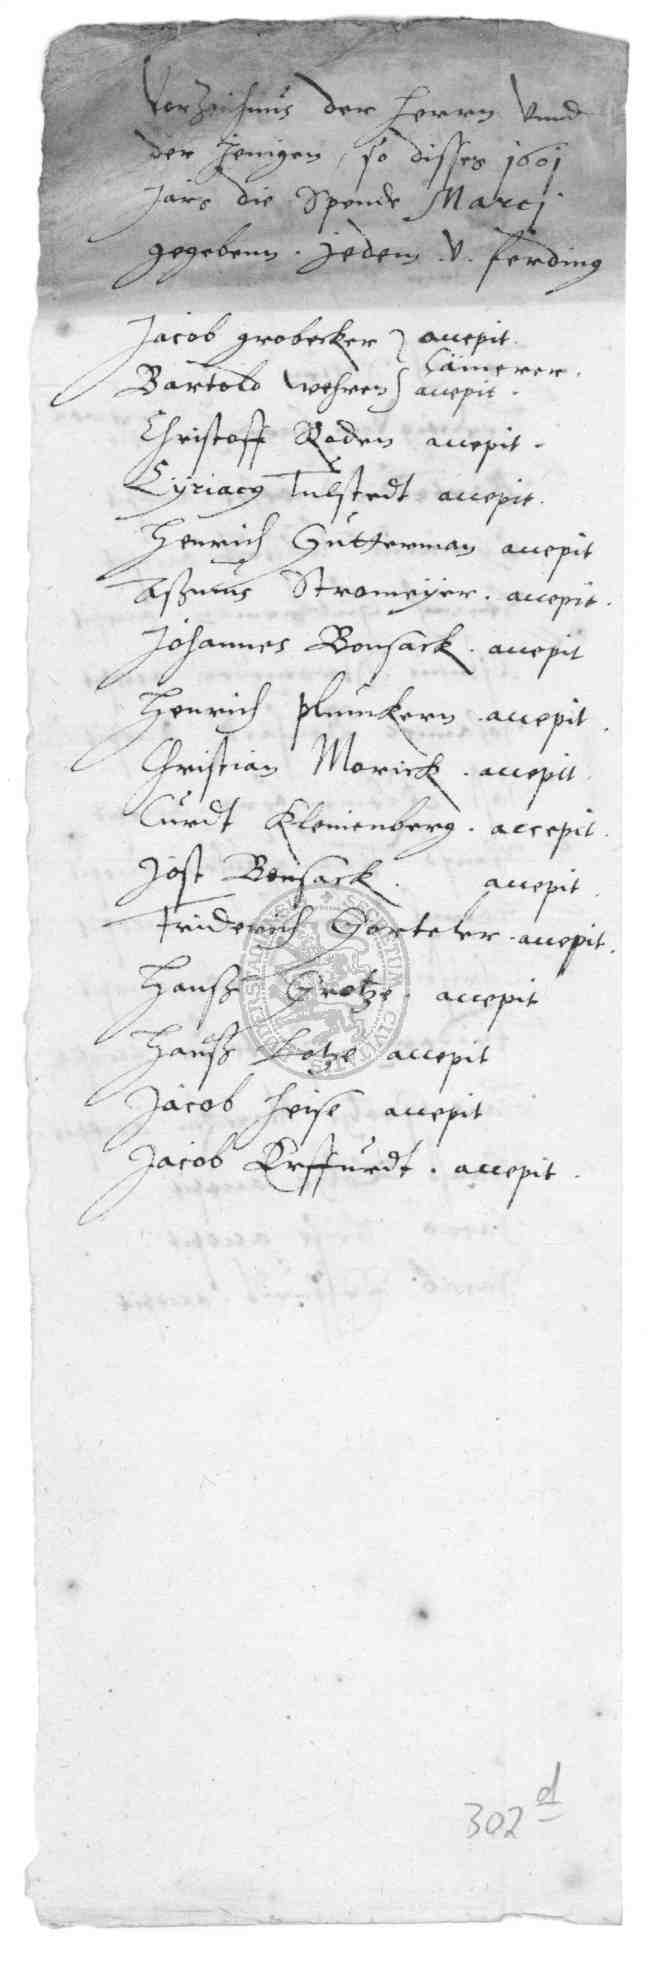 Vorzeichnus der Herrn vnnd
der Jenigen, so disses 1601
Jars die Spende Marcj
gegebenn. Jedem .v. ferding
Jacob grobecker } accepit.
Cämerer.
Bartold Wehren } accepit.
Christoff Roden accepit.
Cyriacg Tulstedt accepit.
Henrich Gutterman accepit
Aßmus Stromeÿer. accepit.
Johannes Bonsack. accepit
Henrich Plunckern accepit.
Christian Morick. accepit.
Curdt Klemenberg. accepit.
Jost Bonsack. accepit.
Friderich Gorteler accepit.
Hanß Grotze. accepit
Hanß Lotze accepit
Jacob Heise accepit
Jacob Erffurdt. accepit.
302 d